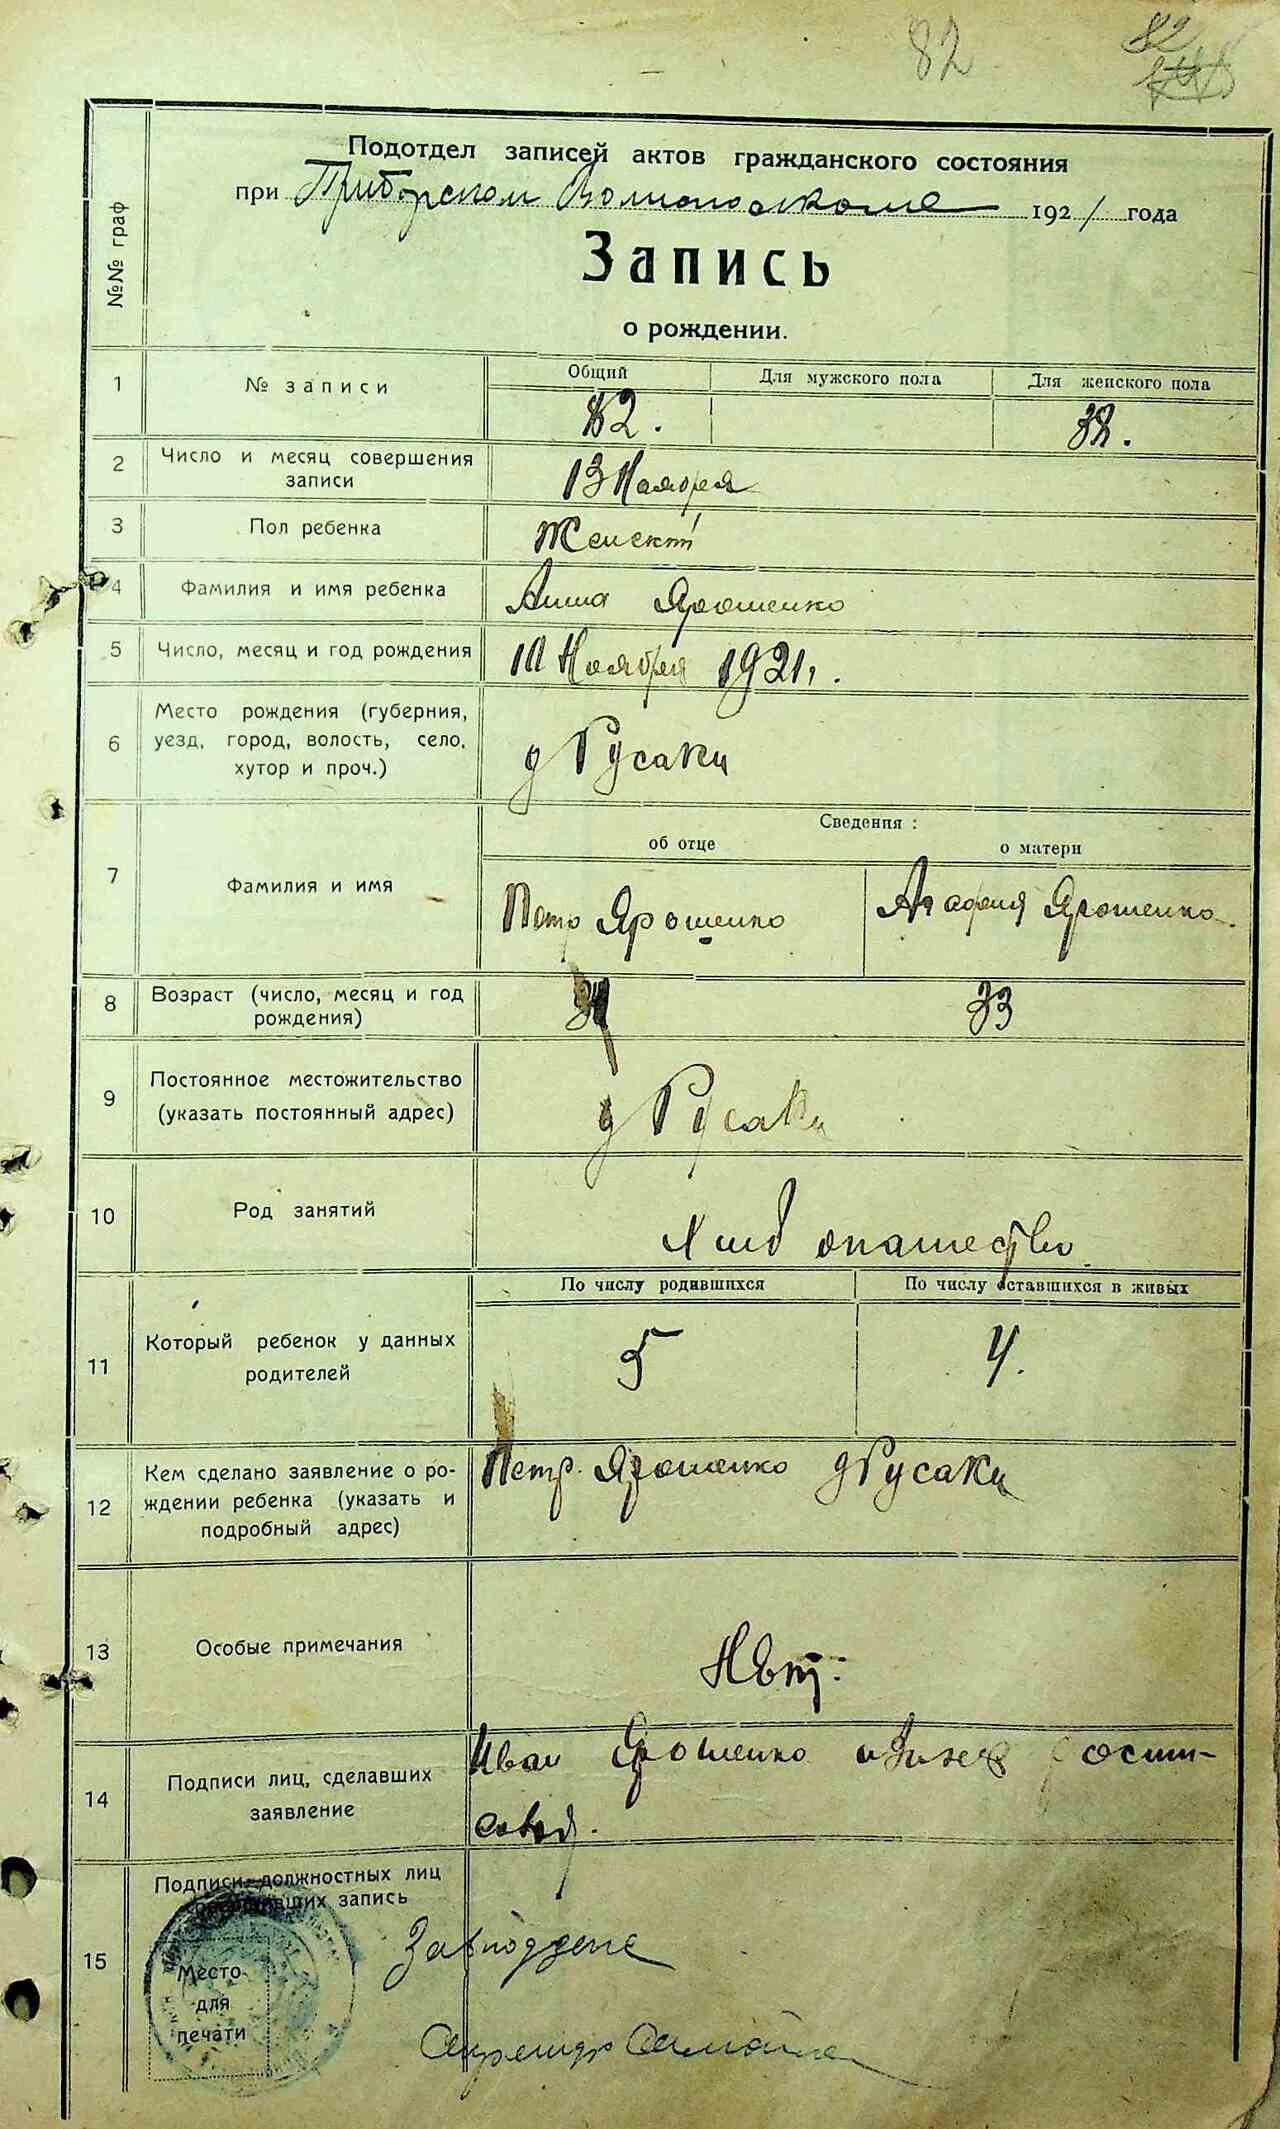 82
82
Подотдел записей актов гражданского состояния
при Приборском Волисполкоме 1921 года
Запись
о рождении.
№№ граф
1 № записи Общий Для мужского пола Для женского пола
82. 38.
2 Число и месяц совершения записи 13 Ноября
3 Пол ребенка Женский
4 Фамилия и имя ребенка Анна Ярошенко
5 Число, месяц и год рождения 10 Ноября 1921 г.
6 Место рождения (губерния, уезд, город, волость, село, хутор и проч.) д Русаки
Сведения:
об отце о матери
7 Фамилия и имя Петр Ярошенко Агафия Ярошенко
8 Возраст (число, месяц и год рождения) 33
9 Постоянное местожительство (указать постоянный адрес) д Русаки
10 Род занятий Хлебопашество
По числу родившихся По числу оставшихся в живых
11 Который ребенок у данных родителей 5 4.
12 Кем сделано заявление о рождении ребенка (указать и подробный адрес) Петр Ярошенко д Русаки
13 Особые примечания Нѣт.
14 Подписи лиц, сделавших заявление Иван Ярошенко
15 Подписи должностных лиц совершивших запись
Завподдела
Место
для
печати